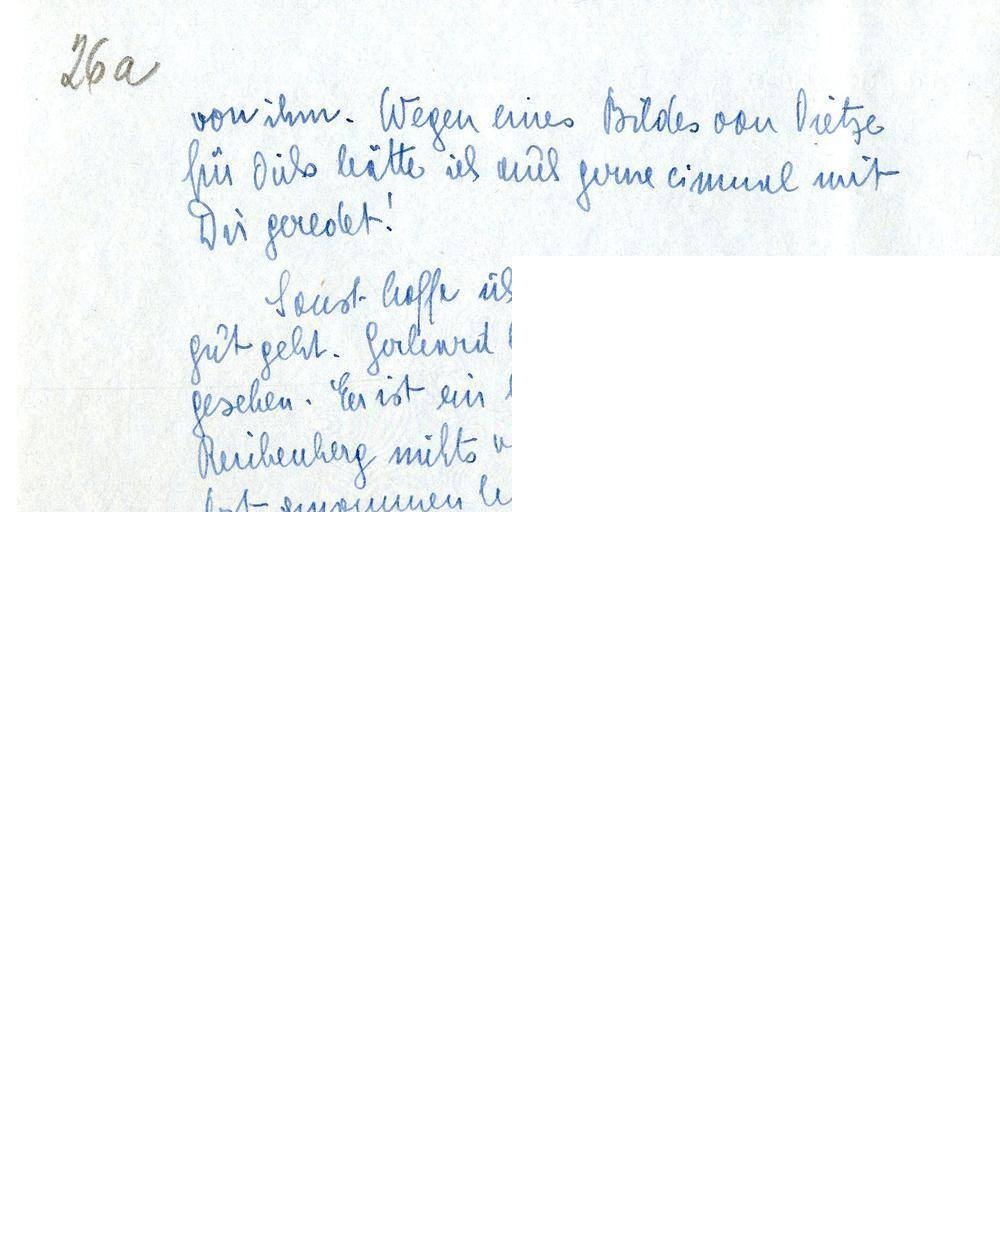 26a
von ihm. Wegen eines Bildes von Dietze
für Dich hätte ich auch gerne einmal mit
Dir geredet!
Sonst hoffe ich
gut geht. Gerhard
gesehen. Er ist ein
Reichenberg nichts